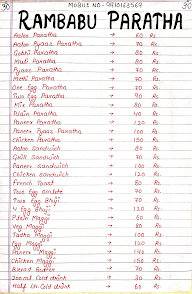 30
MOBILE NO - 9910163569
30
RAMBABU PARATHA
Aaloo Paratha → 60 Rs.
Aaloo Pyaaz Paratha → 70 Rs.
Gobhi Paratha → 80 Rs.
Muli Paratha → 80 Rs.
Pyaaz Paratha → 70 Rs.
Methi Paratha → 70 Rs.
One Egg Paratha → 70 Rs.
Two Egg Paratha → 90 Rs.
Mix Paratha → 80 Rs.
Plain Paratha → 40 Rs.
Paneer Paratha → 120 Rs.
Paneer Pyaaz Paratha → 100 Rs.
Chicken Paratha → 150 Rs.
Aaloo Sandwich → 80 Rs.
Grill Sandwich → 70 Rs.
Paneer Sandwich → 100 Rs.
Chicken Sandwich → 120 Rs.
French Toast → 80 Rs.
Two Egg Omlete → 70 Rs.
Two Egg Bhuji → 70 Rs.
4 Egg Bhuji → 120 Rs.
Plain Maggi → 60 Rs.
Veg Maggi → 80 Rs.
Tadka Maggi → 100 Rs.
Egg Maggi → 120 Rs.
Paneer Maggi → 140 Rs.
Chicken Maggi → 150 Rs.
Bread Butter → 70 Rs.
Cold drink → 30 Rs.
Half Ltr Cold drink → 60 Rs.